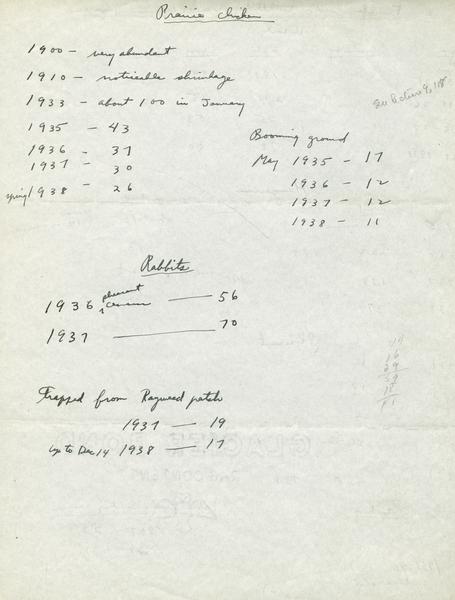 Prairie chicken
1900 - very abundant
1910 - noticable shrinkage
1933 - about 100 in January
1935 - 43
1936 - 37
1937 - 30
spring 1938 - 26
Booming ground
May 1935 - 17
1936 - 12
1937 - 12
1938 - 11
Rabbits
1936 pheasant census — 56
1937 — 70
Trapped from Ragweed patch
1937 — 19
up to Dec 14 1938 — 17